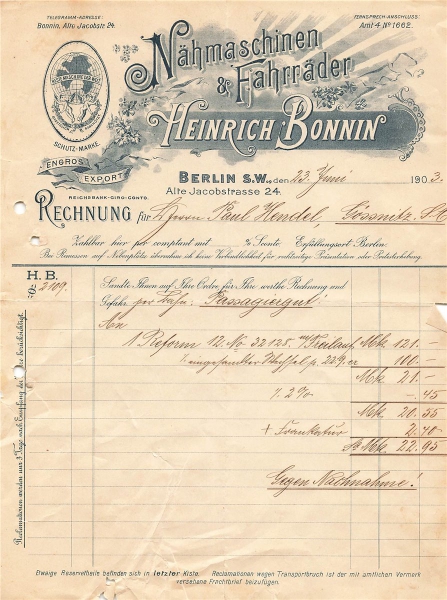 TELEGRAMM-ADRESSE:
Bonnin, Alte Jacobstr. 24.
FERNSPRECH-ANSCHLUSS:
Amt 4. No 1662.
Nähmaschinen
& Fahrräder
HEINRICH BONNIN
SCHUTZ-MARKE.
ENGROS
EXPORT
BERLIN S.W., den 23. Juni 1903.
Alte Jacobstrasse 24.
REICHSBANK-GIRO-CONTO.
RECHNUNG für Herrn Paul Hendel, Gössnitz, S/A
Zahlbar hier per comptant mit % Sconto Erfüllungsort Berlin.
Bei Rimessen auf Nebenplätze übernehme ich keine Verbindlichkeit für rechtzeitige Präsentation oder Protesterhebung.
H. B.
Fo: 2109.
Sandte Ihnen auf Ihre Ordre für Ihre werthe Rechnung und
Gefahr per Bahn: Passagiergut!
An
1 Reform 12. No 32128. m/Freilauf Mk 121.–
% eingesandter Wechsel p. 22/9. cr 100.–
Mk 21.–
% 2% –.45
Mk 20.55
+ Frankatur 2.40
Sa Mk 22.95
Gegen Nachnahme!
Reclamationen werden nur 3 Tage nach Empfang der Waare berücksichtigt.
Etwaige Reservetheile befinden sich in letzter Kiste. Reclamationen wegen Transportbruch ist der mit amtlichen Vermerk
versehene Frachtbrief beizufügen.